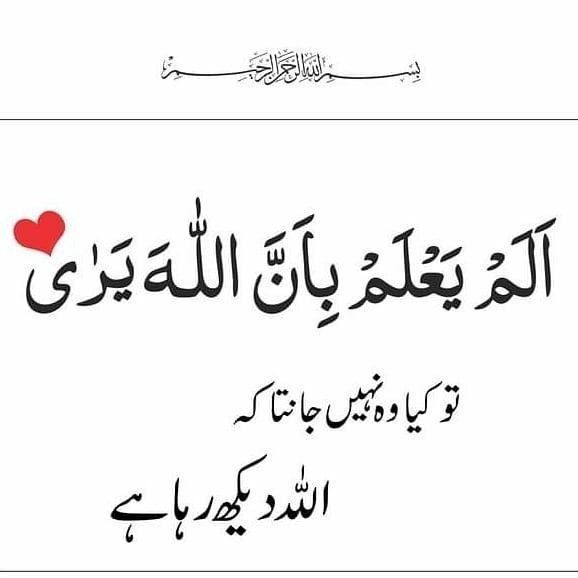 بسم الله الرحمن الرحيم
اَلَمْ يَعْلَمْ بِاَنَّ اللّٰهَ يَرٰى
تو کیا وہ نہیں جانتا کہ
اللہ دیکھ رہا ہے